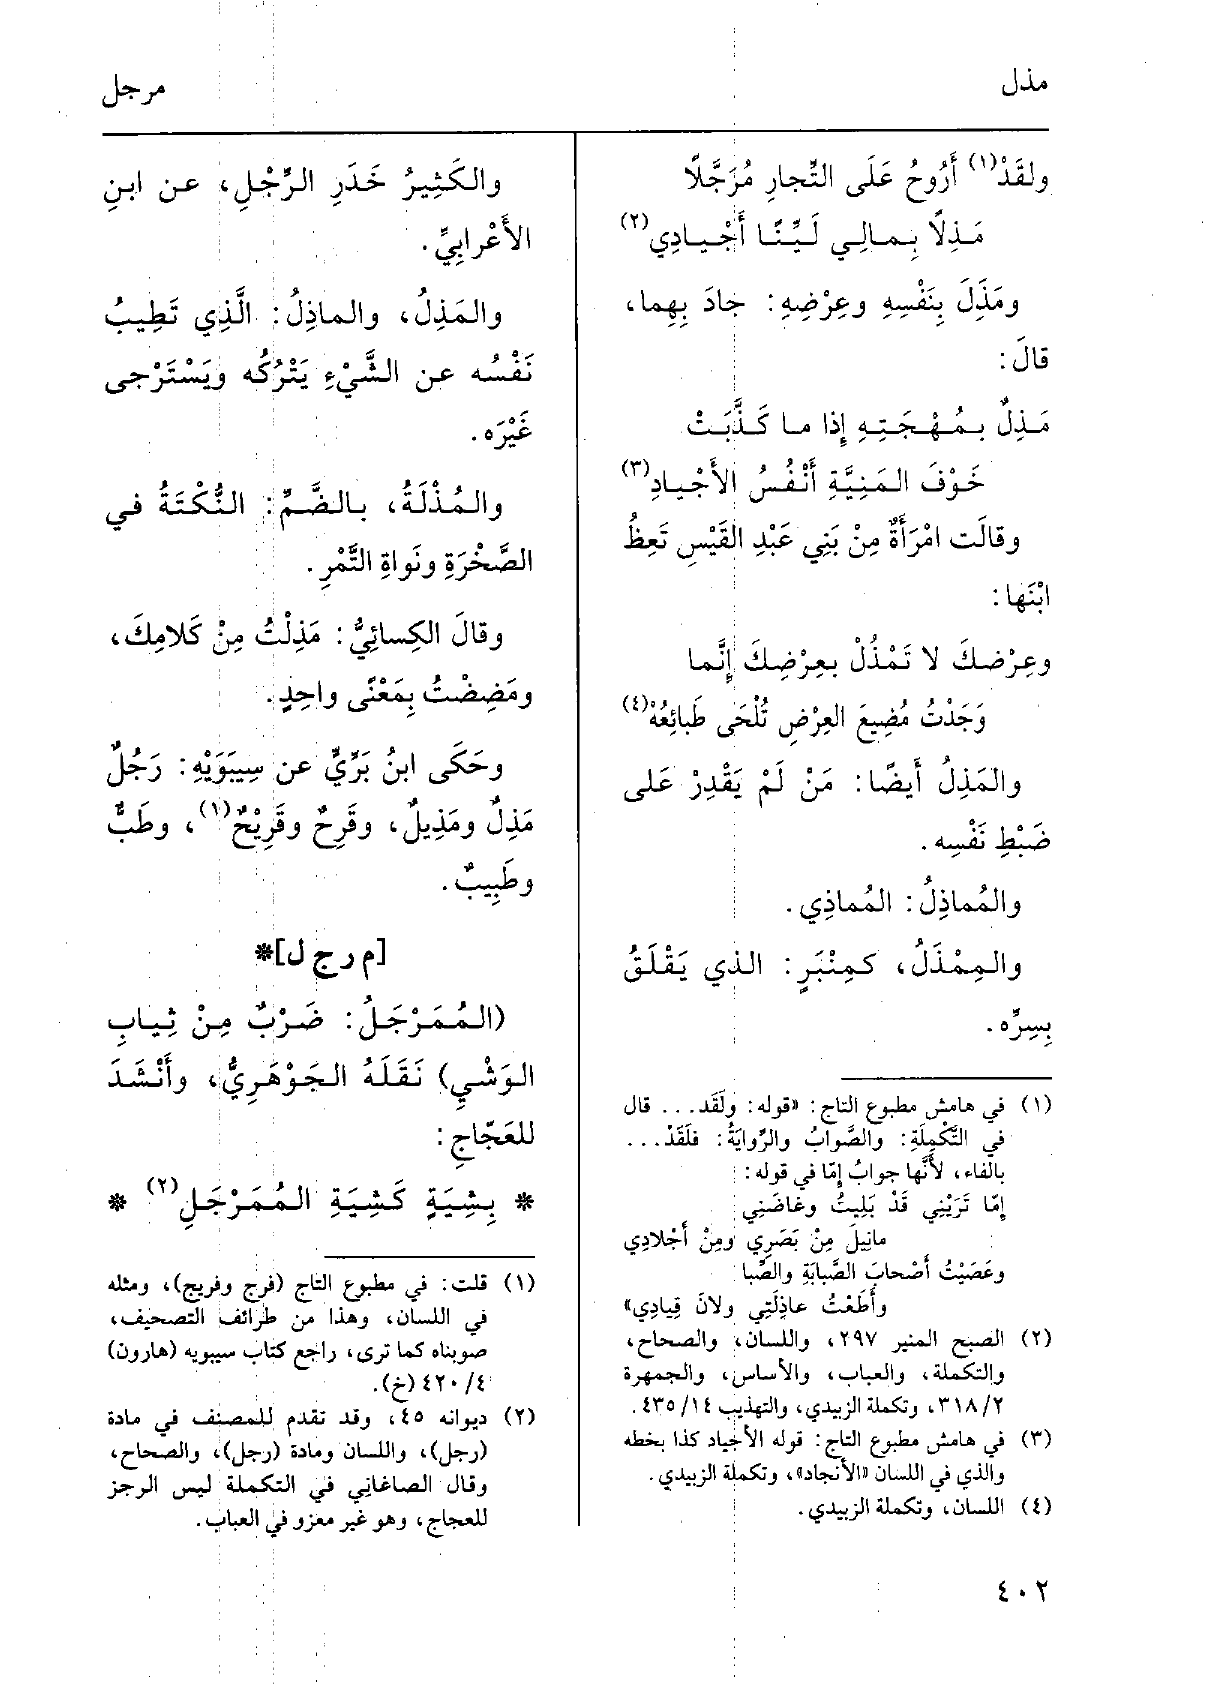 مذل
مرجل
ولقَدْ(١) أَرُوحُ عَلَى التِّجارِ مُرَجَّلًا
مَـذِلًا بِـمـالِـي لَـيِّـنًـا أَجْـيـادِي(٢)
ومَذَلَ بِنَفْسِهِ وعِرْضِهِ: جادَ بِهِما،
قالَ:
مَـذِلٌ بـمُـهْـجَـتِـهِ إذا مـا كَـذَّبَـتْ
خَـوْفَ المَنِيَّةِ أَنْفُسُ الأَجْيادِ(٣)
وقالَت امْرَأَةٌ مِنْ بَنِي عَبْدِ القَيْسِ تَعِظُ
ابْنَها:
وعِرْضكَ لا تَمْذُلْ بعِرْضِكَ إنَّما
وَجَدْتُ مُضِيعَ العِرْضِ تُلْحَى طَبائِعُهْ(٤)
والمَذِلُ أَيضًا: مَنْ لَمْ يَقْدِرْ عَلى
ضَبْطِ نَفْسِه.
والمُماذِلُ: المُماذِي.
والمِمْذَلُ، كمِنْبَرٍ: الذي يَقْلَقُ
بِسِرِّه.
(١) في هامش مطبوع التاج: «قوله: ولَقَد... قال
في التَّكْمِلَةِ: والصَّوابُ والرِّوايَةُ: فلَقَدْ...
بالفاء، لأَنَّها جوابُ إمّا في قوله:
إمّا تَرَيْنِي قَدْ بَلِيتُ وغاضَنِي
مانِيلَ مِنْ بَصَرِي ومِنْ أَجْلادِي
وعَصَيْتُ أَصْحابَ الصَّبابَةِ والصِّبا
وأَطَعْتُ عاذِلَتِي ولانَ قِيادِي»
(٢) الصبح المنير ٢٩٧، واللسان، والصحاح،
والتكملة، والعباب، والأساس، والجمهرة
٣١٨/٢، وتكملة الزبيدي، والتهذيب ٤٣٥/١٤.
(٣) في هامش مطبوع التاج: قوله الأجياد كذا بخطه
والذي في اللسان «الأنجاد»، وتكملة الزبيدي.
(٤) اللسان، وتكملة الزبيدي.
والكَثِيرُ خَدَرِ الرِّجْلِ، عن ابنِ
الأَعْرابِيِّ.
والمَذِلُ، والماذِلُ: الَّذِي تَطِيبُ
نَفْسُه عن الشَّيْءِ يَتْرُكُه ويَسْتَرْجى
غَيْرَه.
والمُذْلَةُ، بالضَّمِّ: النُّكْتَةُ في
الصَّخْرَةِ ونَواةِ التَّمْرِ.
وقالَ الكِسائِيُّ: مَذِلْتُ مِنْ كَلامِكَ،
ومَضِضْتُ بِمَعْنًى واحِدٍ.
وحَكَى ابنُ بَرِّيٍّ عن سِيبَوَيْهِ: رَجُلٌ
مَذِلٌ ومَذِيلٌ، وقَرِحٌ وقَرِيْحٌ(١)، وطَبٌّ
وطَبِيبٌ.
[م ر ج ل]*
(المُمَرْجَلُ: ضَرْبٌ مِنْ ثِيابِ
الوَشْيِ) نَقَلَهُ الجَوْهَرِيُّ، وأَنْشَدَ
للعَجّاجِ:
* بِشِيَةٍ كَشِيَةِ المُمَرْجَلِ(٢) *
(١) قلت: في مطبوع التاج (فرج وفريج)، ومثله
في اللسان، وهذا من طرائف التصحيف،
صوبناه كما ترى، راجع كتاب سيبويه (هارون)
٤٢٠/٤ (خ).
(٢) ديوانه ٤٥، وقد تقدم للمصنف في مادة
(رجل)، واللسان ومادة (رجل)، والصحاح،
وقال الصاغاني في التكملة ليس الرجز
للعجاج، وهو غير معزو في العباب.
٤٠٢